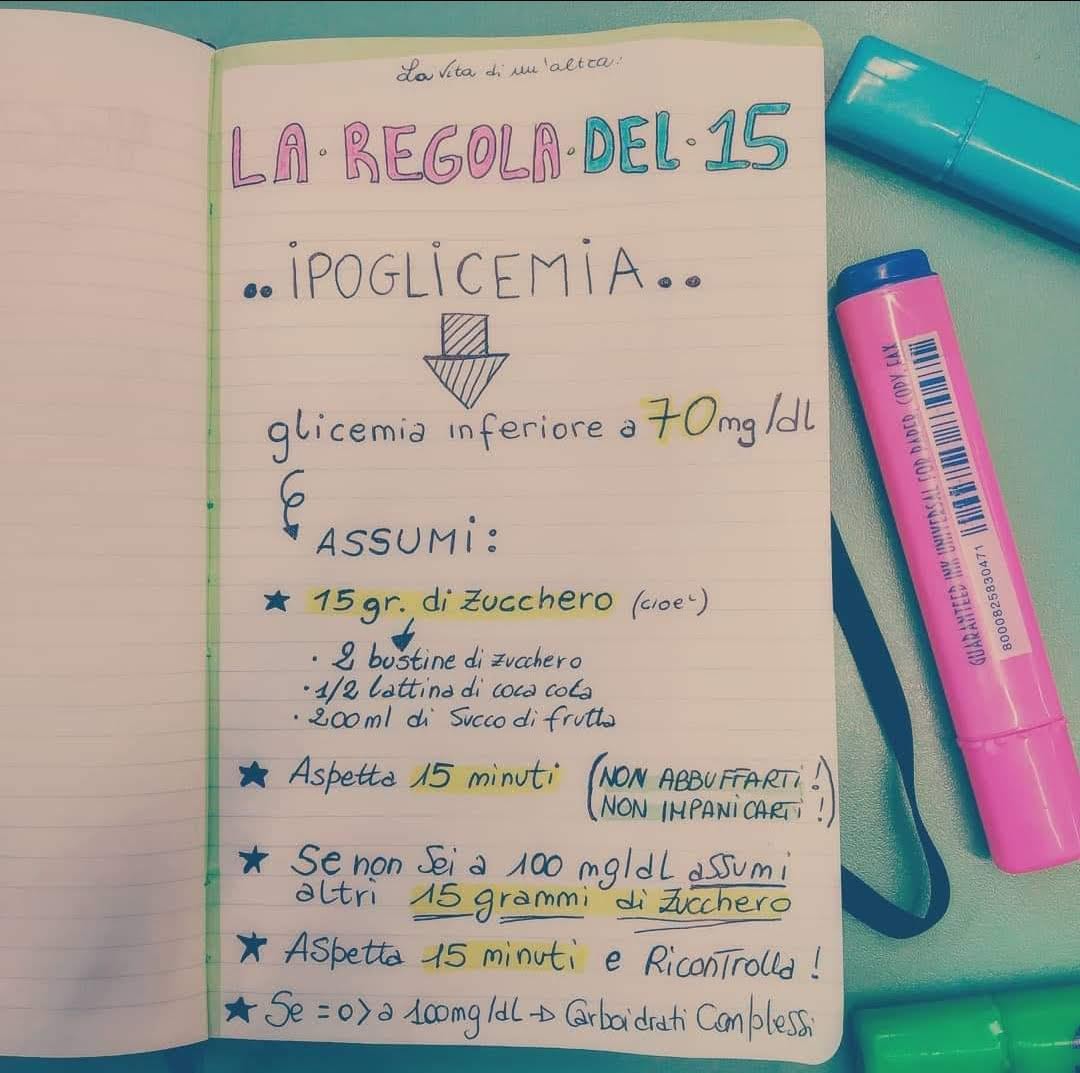 La Vita di un'altra.
LA • REGOLA • DEL • 15
.. iPOGLiCEMiA ..
glicemia inferiore a 70mg/dl
ASSUMi:
★ 15gr. di Zucchero (cioe')
• 2 bustine di zucchero
• 1/2 lattina di coca cola
• 200ml di Succo di frutta
★ Aspetta 15 minuti (NON ABBUFFARTi!
NON IMPANiCARTi!)
★ Se non Sei a 100 mg/dL assumi
altri 15 grammi di Zucchero
★ Aspetta 15 minuti e RiconTrolla!
★ Se = o > a 100mg/dL → Carboidrati Complessi
GUARANTEED INK UNIVERSAL FOR PAPER, COPY, FAX
8000825830471